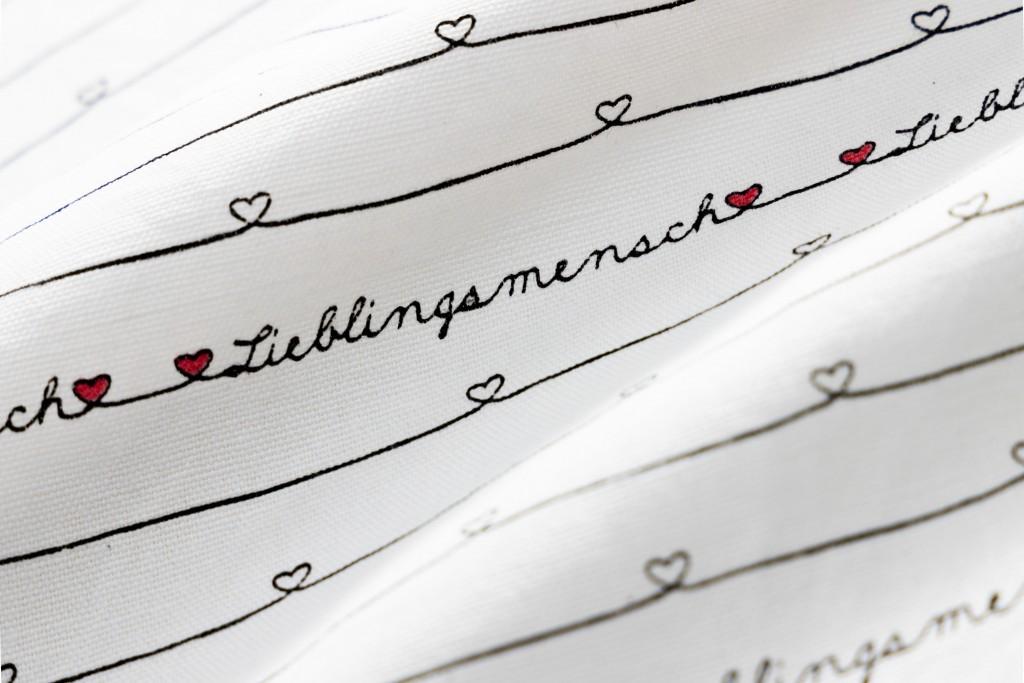 ch Lieblingsmensch Liebl
lingsme